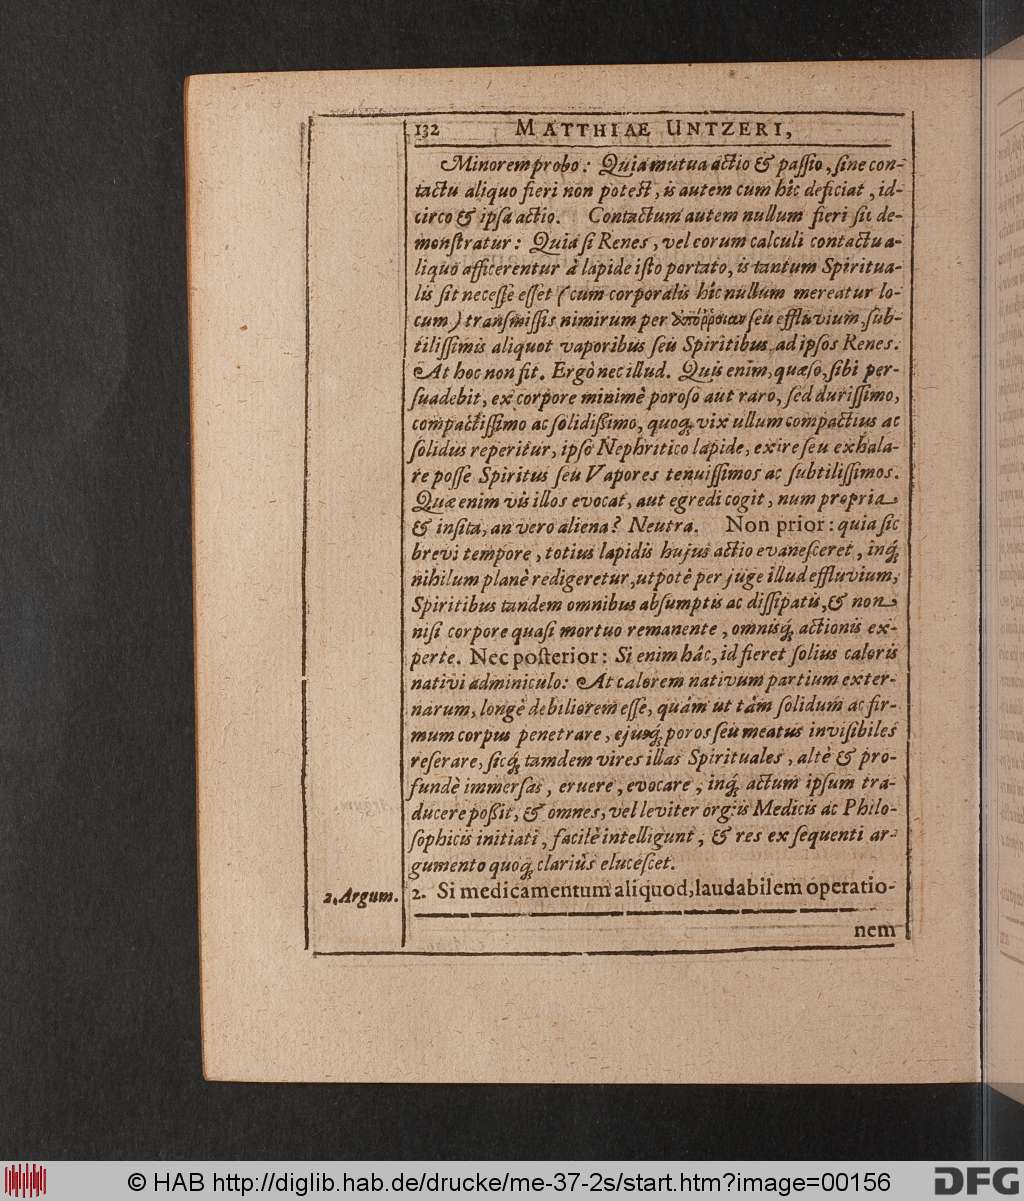 132 MATTHIAE UNTZERI,
Minorem probo: Quia mutua actio & passio, sine con-
tactu aliquo fieri non potest, is autem cum hîc deficiat, id-
circo & ipsa actio. Contactum autem nullum fieri sic de-
monstratur: Quia si Renes, vel eorum calculi contactu a-
liquo afficerentur à lapide isto portato, is tantum Spiritua-
lis sit necesse esset (cum corporalis hîc nullum mereatur lo-
cum) transmissis nimirum per seu effluvium, sub-
tilissimis aliquot vaporibus seu Spiritibus ad ipsos Renes.
At hoc non fit. Ergò nec illud. Quis enim, quæso, sibi per-
suadebit, ex corpore minimè poroso aut raro, sed durissimo,
compactissimo ac solidißimo, quoq; vix ullum compactius ac
solidus reperitur, ipso Nephritico lapide, exire seu exhala-
re posse Spiritus seu Vapores tenuissimos ac subtilissimos.
Quæ enim vis illos evocat, aut egredi cogit, num propria
& insita, an vero aliena? Neutra. Non prior: quia sic
brevi tempore, totius lapidis hujus actio evanesceret, inq;
nihilum planè redigeretur, utpotè per juge illud effluvium,
Spiritibus tandem omnibus absumptis ac dissipatis, & non
nisi corpore quasi mortuo remanente, omnisq; actionis ex-
perte. Nec posterior: Si enim hâc, id fieret solius caloris
nativi adminiculo: At calorem nativum partium exter-
narum, longè debiliorem esse, quàm ut tàm solidum ac fir-
mum corpus penetrare, ejusq; poros seu meatus invisibiles
reserare, sicq; tamdem vires illas Spirituales, altè & pro-
fundè immersas, eruere, evocare, inq; actum ipsum tra-
ducere poßit, & omnes, vel leviter orgiis Medicis ac Philo-
sophicis initiati, facilè intelligunt, & res ex sequenti ar-
gumento quoq; clariùs elucescet.
2. Argum. 2. Si medicamentum aliquod, laudabilem operatio-
nem
© HAB http://diglib.hab.de/drucke/me-37-2s/start.htm?image=00156
DFG